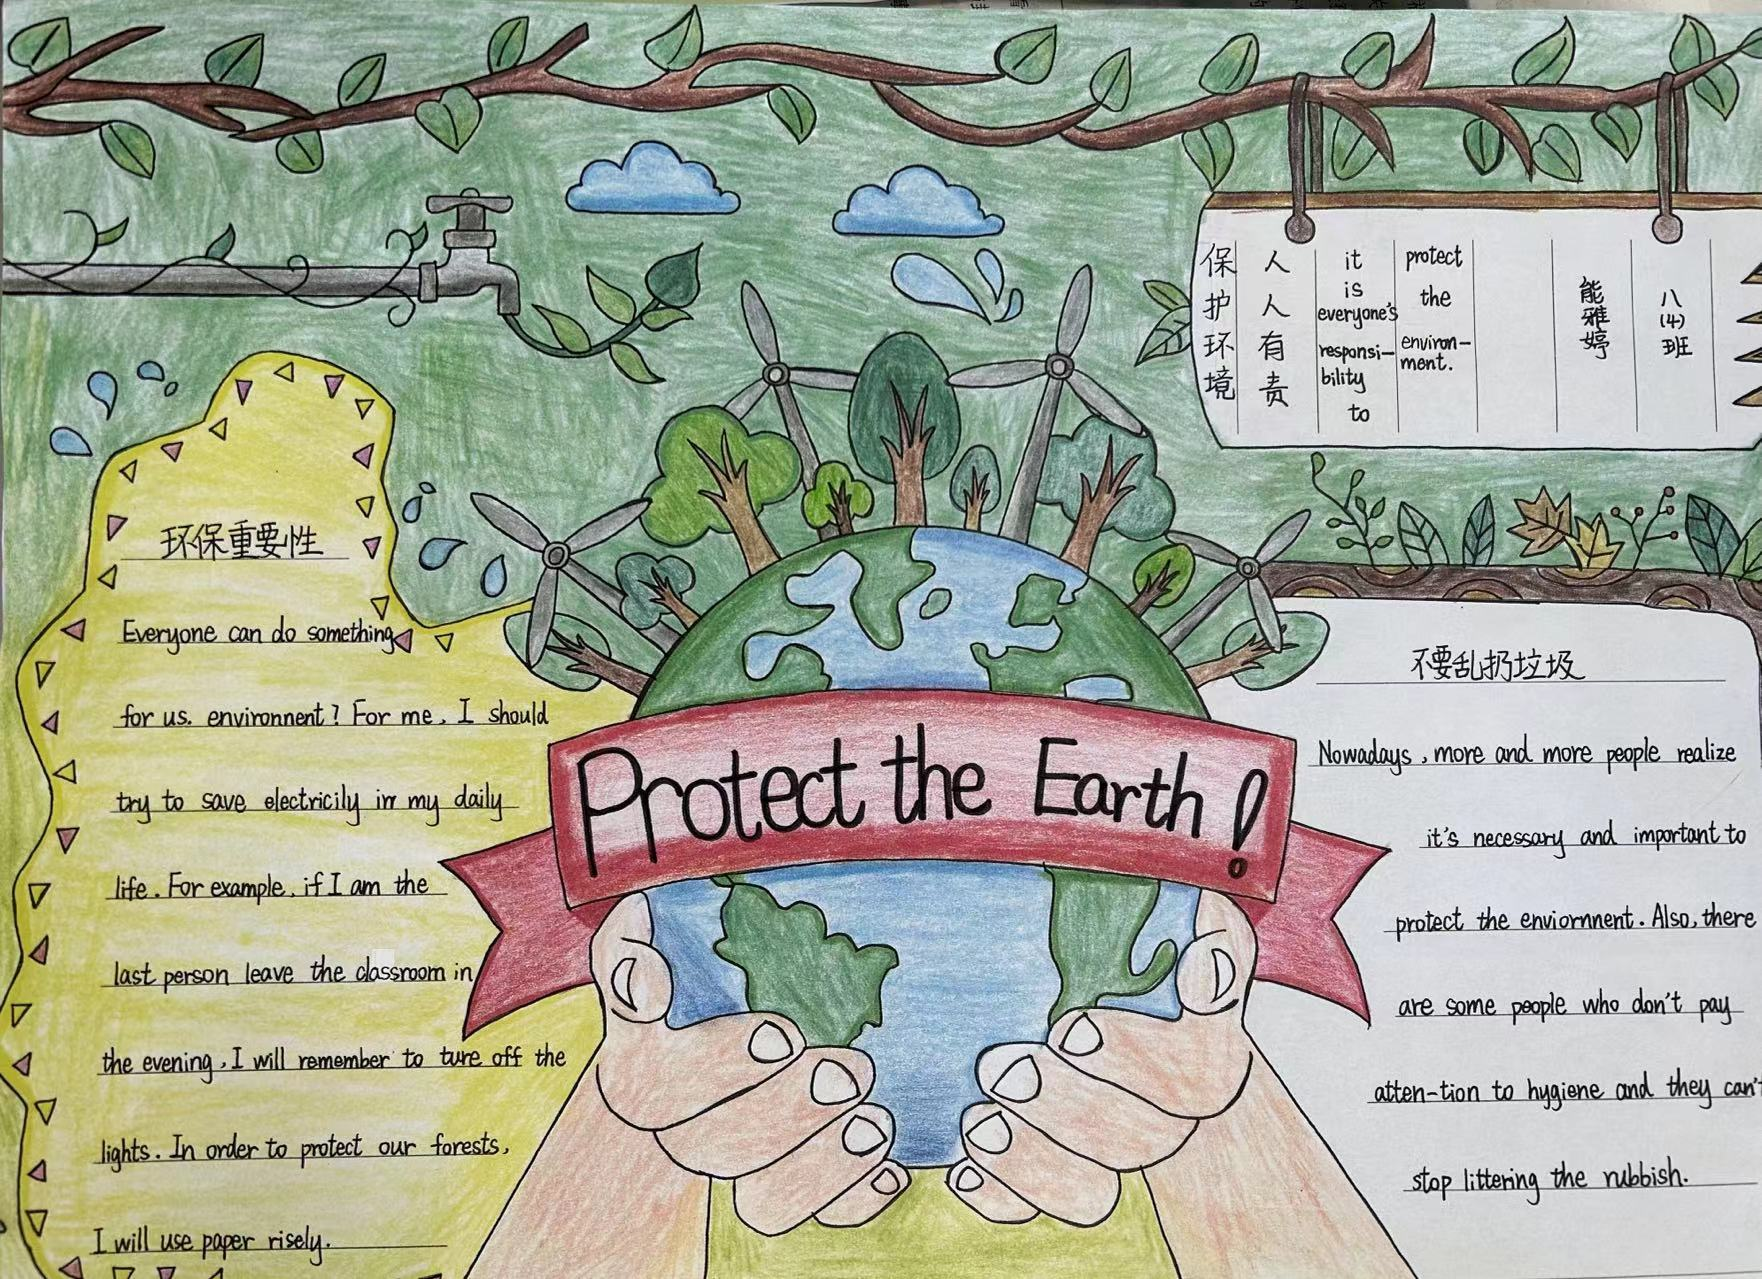 保护环境
人人有责
it
is
everyone's
responsi-
bility
to
protect
the
environ-
ment.
能雅婷
八(4)班
环保重要性
Everyone can do something
for us. environnent? For me, I should
try to save electricily in my daily
life. For example, if I am the
last person leave the classroom in
the evening, I will remember to ture off the
lights. In order to protect our forests,
I will use paper risely.
Protect the Earth!
不要乱扔垃圾
Nowadays, more and more people realize
it's necessary and important to
protect the enviornnent. Also, there
are some people who don't pay
atten-tion to hygiene and they can't
stop littering the rubbish.